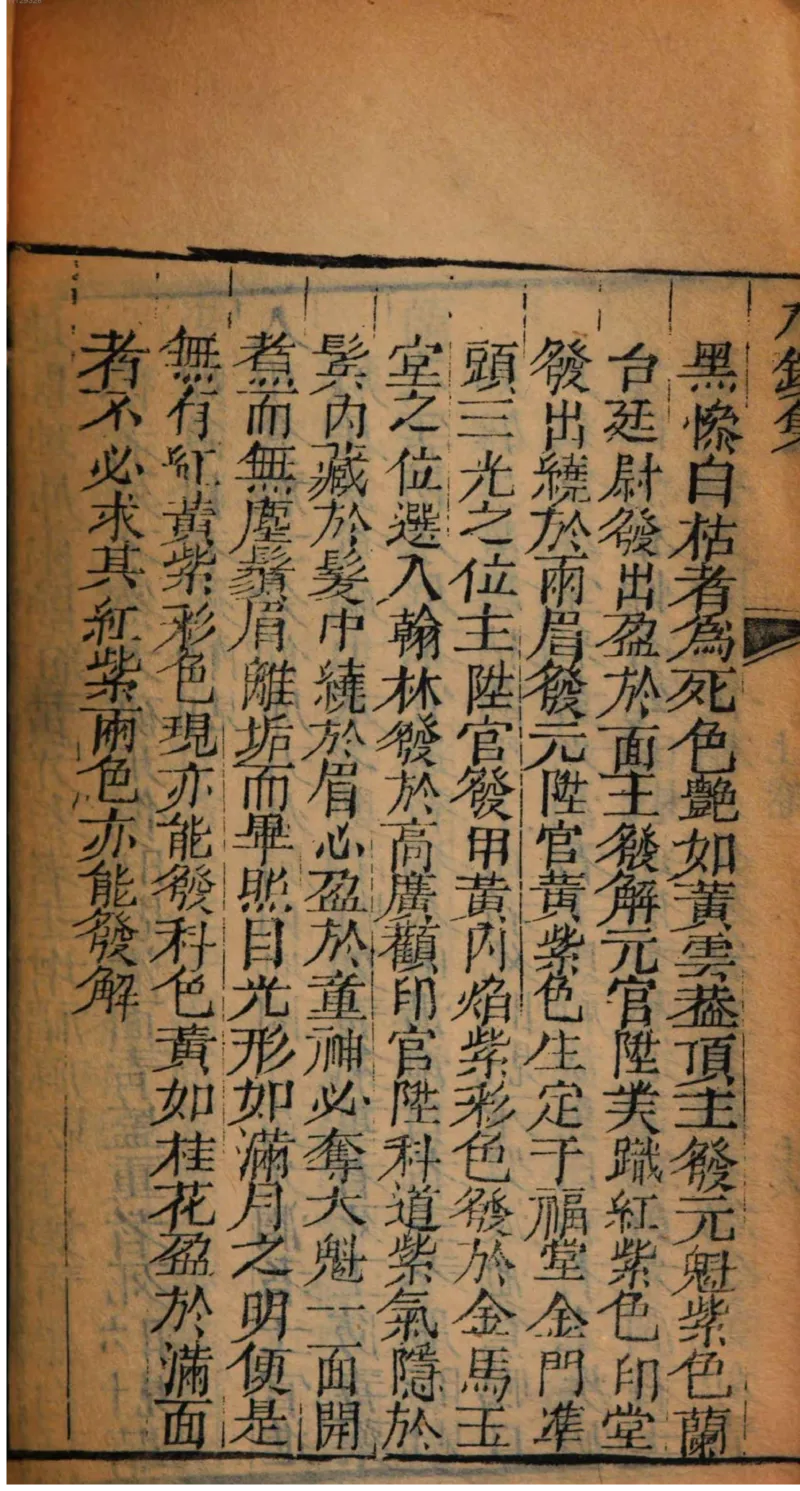 黑慘白枯者為死色艷如黃雲葢頂主發元魁紫色蘭
台廷尉發出盈於面主發解元官陞美職紅紫色印堂
發出繞於兩眉發元陞官黃紫色生定于福堂金門凖
頭三光之位主陞官發甲黃內焰紫彩色發於金馬玉
堂之位選入翰林發於高廣顴印官陞科道紫氣隱於
鬂內藏於髮中繞於眉心盈於童神必奪大魁一面開
煮而無塵鬚眉離垢而畢照目光形如滿月之明便是
無有紅黃紫彩色現亦能發科色黃如桂花盈於滿面
者不必求其紅紫兩色亦能發解